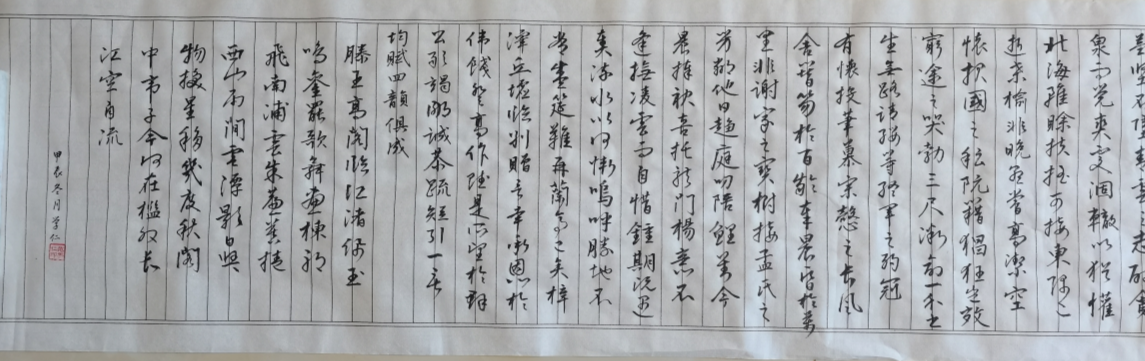 泉而覺爽處涸轍以猶懽
北海雖賒扶搖可接東隅已
逝桑榆非晚孟嘗高潔空
懷報國之阮籍猖狂豈效
窮途之哭勃三尺微命一介書
生無路請纓等終軍之弱冠
有懷投筆慕宗慤之長風
舍簪笏於百齡奉晨昏於萬
里非謝家之寶樹接孟氏之
芳鄰他日趨庭叨陪鯉對今
晨捧袂喜托龍門楊意不
逢撫凌雲而自惜鍾期既遇
奏流水以何慚嗚呼勝地不
常盛筵難再蘭亭已矣梓
澤丘墟臨別贈言幸承恩於
偉餞登高作賦是所望於群
公敢竭鄙誠恭疏短引一言
均賦四韻俱成
滕王高閣臨江渚佩玉
鳴鑾罷歌舞畫棟朝
飛南浦雲朱簾暮捲
西山雨閒雲潭影日悠
物換星移幾度秋閣
中帝子今何在檻外長
江空自流
甲辰冬月學仁